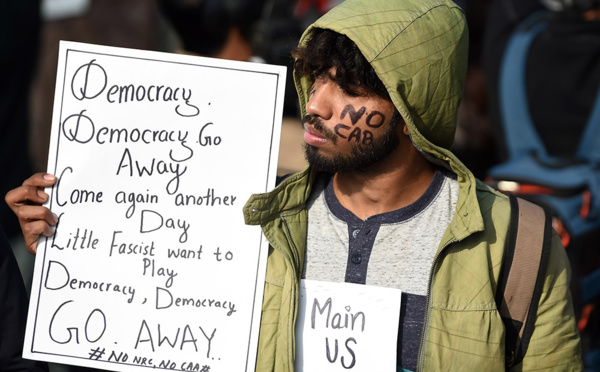 Democracy.
Democracy Go
Away
Come again another
Day
Little Fascist want to
Play
Democracy, Democracy
GO. AWAY..
#NO NRC, NO CAA#
NO
CAB
Main
US